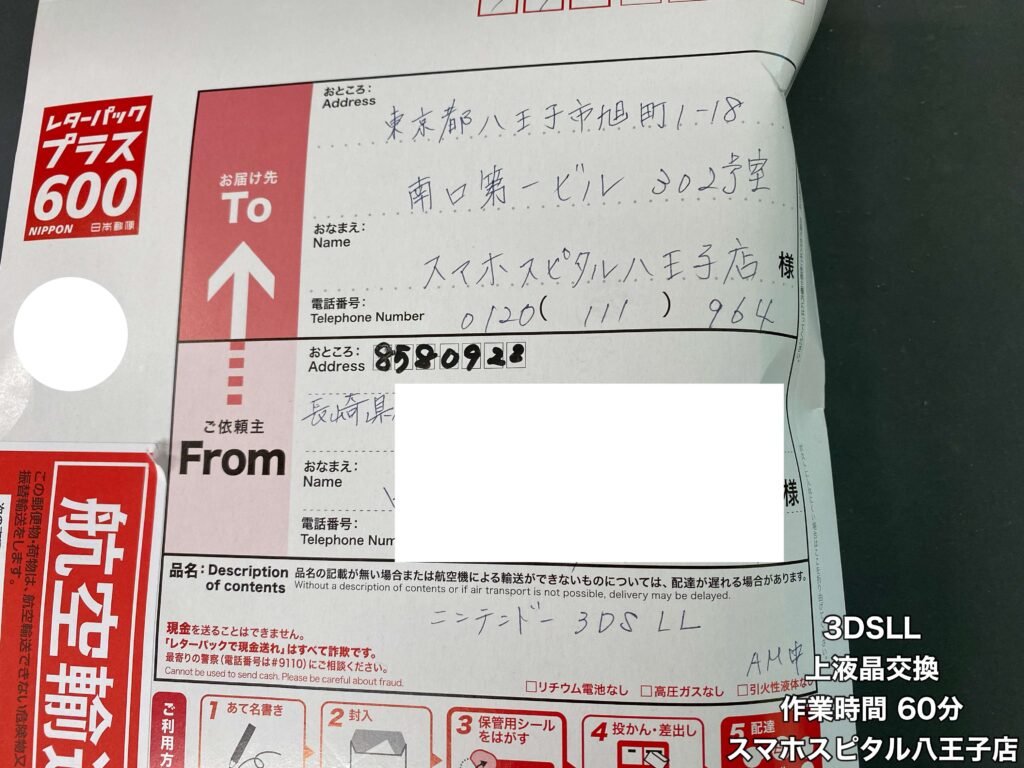 レターパック
プラス
600
NIPPON 日本郵便
お届け先
To
おところ:
Address
東京都八王子市旭町1-18
南口第一ビル 302号室
おなまえ:
Name
スマホスピタル八王子店 様
電話番号:
Telephone Number
0120( 111 ) 964
ご依頼主
From
おところ:
Address
8580928
長崎県
おなまえ:
Name
様
電話番号:
Telephone Num
品名:Description
of contents
品名の記載が無い場合または航空機による輸送ができないものについては、配達が遅れる場合があります。
Without a description of contents or if air transport is not possible, delivery may be delayed.
ニンテンドー 3DS LL
現金を送ることはできません。
「レターパックで現金送れ」はすべて詐欺です。
最寄りの警察(電話番号は#9110)にご相談ください。
Cannot be used to send cash. Please be careful about fraud.
AM中
□リチウム電池なし □高圧ガスなし □引火性液体な
航空輸送
この郵便物・荷物は、航空輸送できない危険物又
振替輸送をします。
ご利用方
1 あて名書き
2 封入
3 保管用シール
をはがす
4 投かん・差出し
5 配達
3DSLL
上液晶交換
作業時間 60分
スマホスピタル八王子店